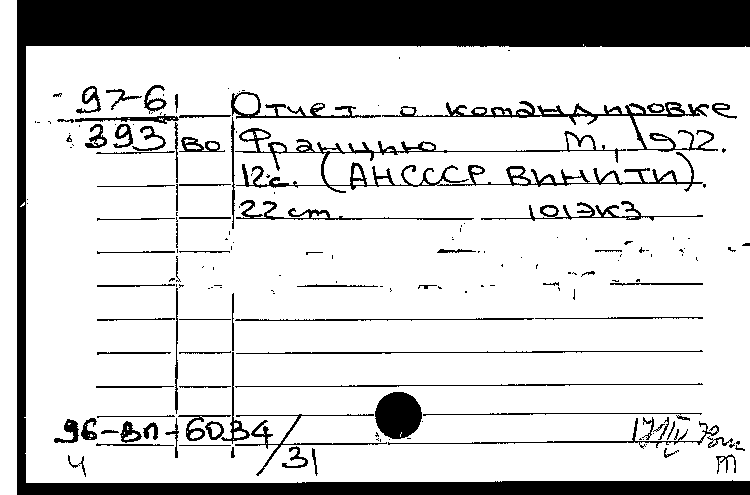 97-6 Отчет о командировке
393 во Францию. М., 1972.
12с. (АН СССР. ВИНИТИ).
22 см. 101экз.
96-ВП-6034/31
Ч
т